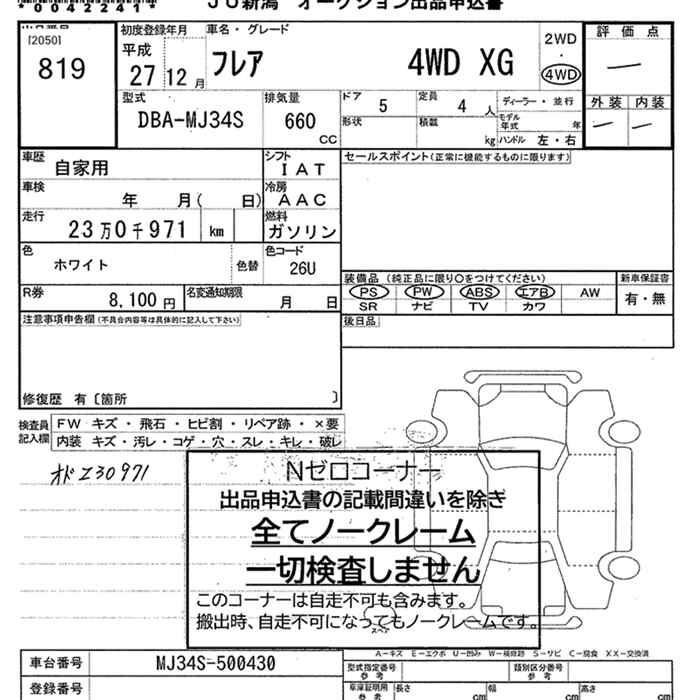 *0042241*
JU新潟 オークション出品申込書
出品番号
[2050]
819
初度登録年月
平成
27 12 月
車名・グレード
フレア 4WD XG
2WD
・
4WD
評価点
―
外装 内装
― ―
型式
DBA-MJ34S
排気量
660
CC
ドア
5
定員
4 人
ディーラー・並行
形状
積載
kg
モデル年式 年
ハンドル 左・右
車歴
自家用
シフト
IAT
セールスポイント(正常に機能するものに限ります)
車検
年 月( 日)
冷房
AAC
走行
23万0千971 km
燃料
ガソリン
色
ホワイト
色替
色コード
26U
装備品(純正品に限り○をつけてください)
PS PW ABS エアB AW
SR ナビ TV カワ
新車保証書
有・無
R券
8,100 円
名変通知期限
月 日
後日品
注意事項申告欄(不具合内容等は具体的に記入して下さい)
修復歴 有〔箇所 〕
検査員記入欄
FW キズ・飛石・ヒビ割・リペア跡・×要
内装 キズ・汚レ・コゲ・穴・スレ・キレ・破レ
オドZ30971
Nゼロコーナー
出品申込書の記載間違いを除き
全てノークレーム
一切検査しません
このコーナーは自走不可も含みます。
搬出時、自走不可になってもノークレームです。
スペア
A-キズ E-エクボ U-凹み W-補修跡 S-サビ C-腐食 XX-交換済
車台番号
MJ34S-500430
型式指定番号
参考
類別区分番号
参考
登録番号
車庫証明用
参考
長さ
cm
幅
cm
高さ
cm